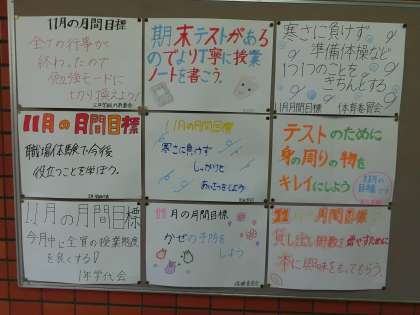 11月の月間目標
全ての行事が
終わったので
勉強モードに
切り換えよう!
期末テストがある
のでより丁寧に授業
ノートを書こう。
寒さに負けず
準備体操など
1つ1つのことを
きちんとする
11月月間目標 体育委員会
11月の月間目標
職場体験で今後
役立つことを学ぼう。
11月の月間目標
寒さに負けず
しっかりと
あいさつをしよう
テストのために
身の周りの物を
キレイにしよう
11月の
目標です
11月の月間目標
今月中に全員の授業態度
を良くする!
1年学代会
11月の月間目標
かぜの予防を
しよう
保健委員会
11月の月間目標
貸し出し冊数を増やすために
本に興味をもってもらう。